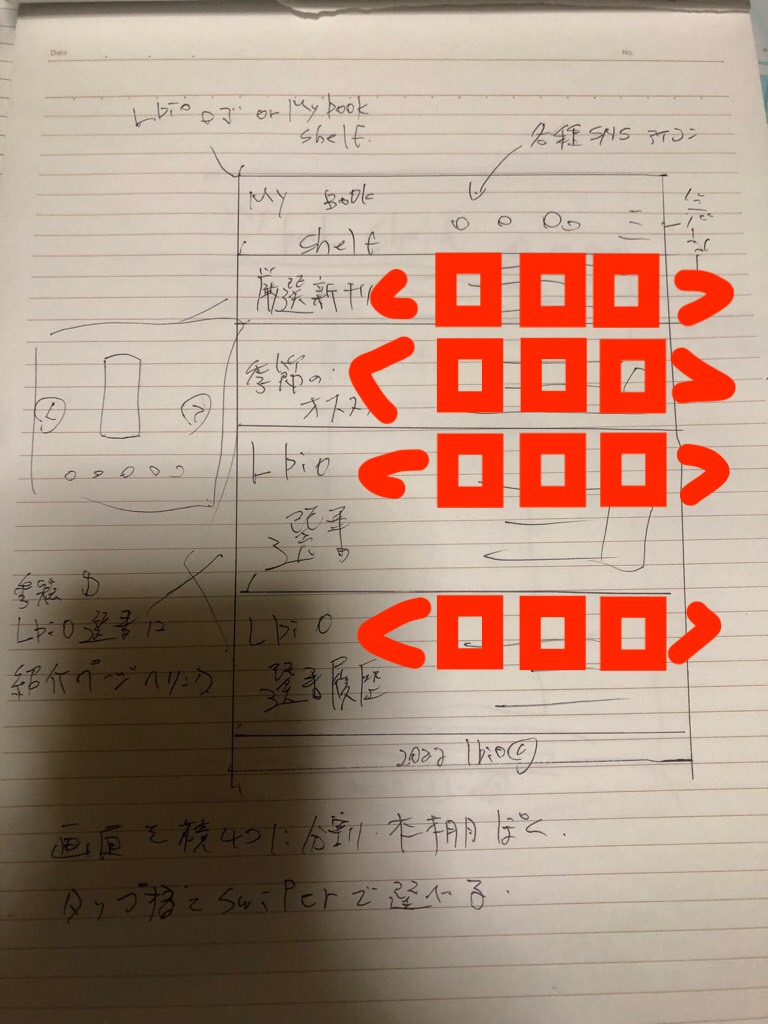 Date
No.
Lbio ロゴ or My book
shelf.
各種SNS アイコン
My Book
Shelf
厳選新刊
季節の
オススメ
Lbio
選書
Lbio
選書履歴
季節の
Lbio選書は
紹介ページへリンク
2022 Lbio
画面を横4つに分割 本棚ぽく.
タップ後にSwiperで選べる.